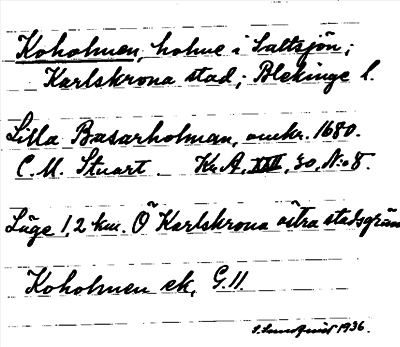 Koholmen, holme i Saltsjön;
Karlskrona stad; Blekinge l.
Lilla Basarholman, omkr. 1680.
C. M. Stuart. Kr. A, XXII, 30, No 8.
Läge 1,2 km. Ö Karlskrona östra stadsgräns
Koholmen ek, G. 11.
S. Lundquist 1936.